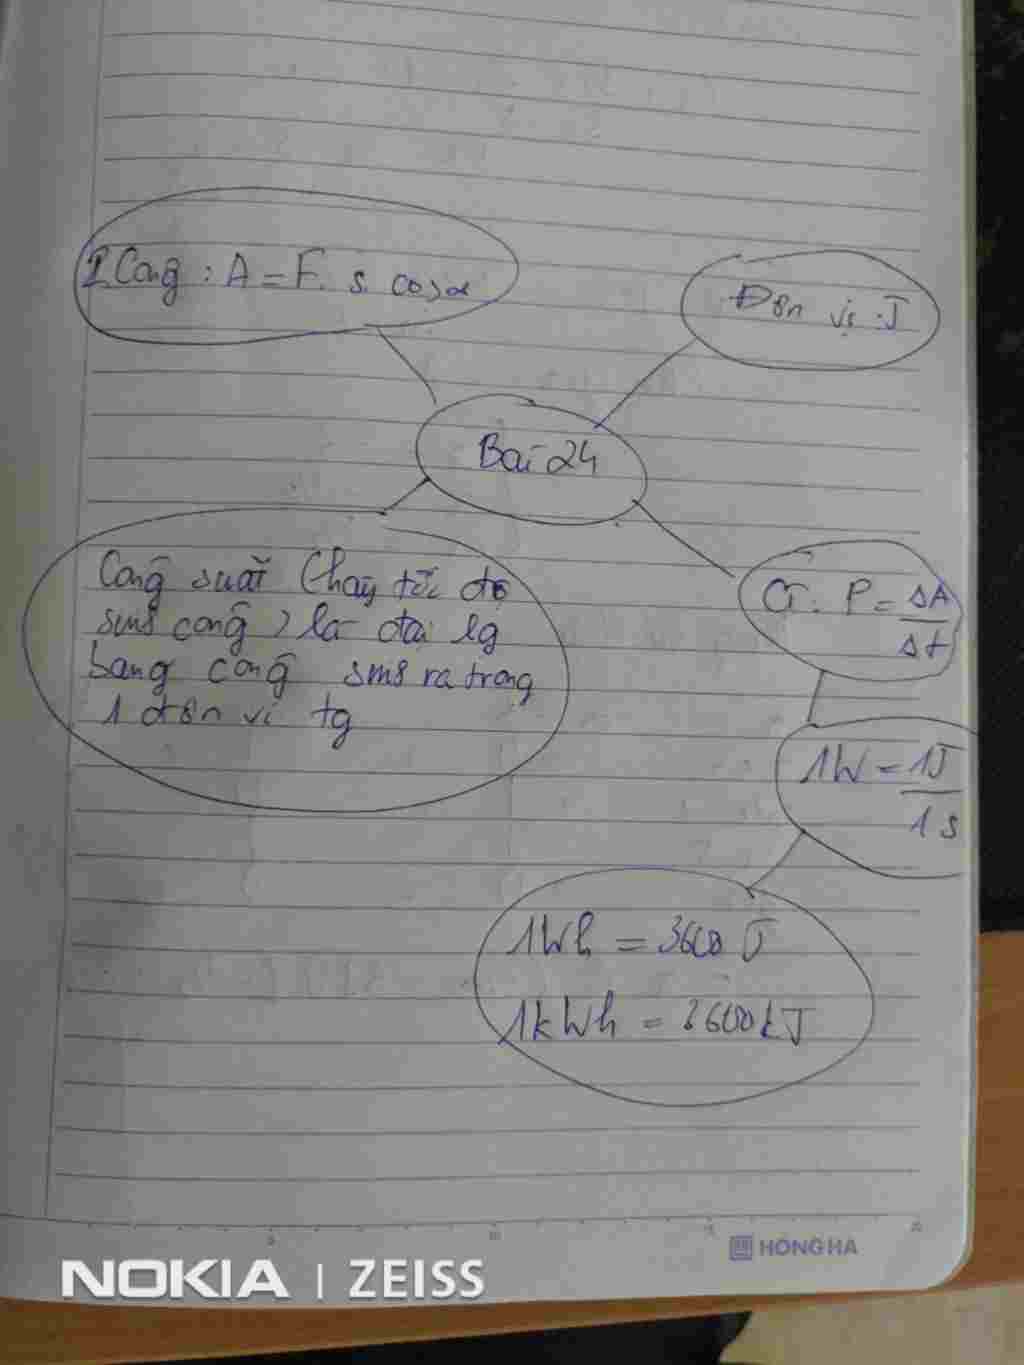 I. Công : A = F. s. cosα
Đơn vị : J
Bài 24
Công suất (hay tốc độ
sinh công) là đại lg
bằng công sinh ra trong
1 đơn vị tg
CT: P = ΔA
Δt
1W = 1J
1 s
1Wh = 3600 J
1kWh = 3600kJ
HONG HA
NOKIA | ZEISS